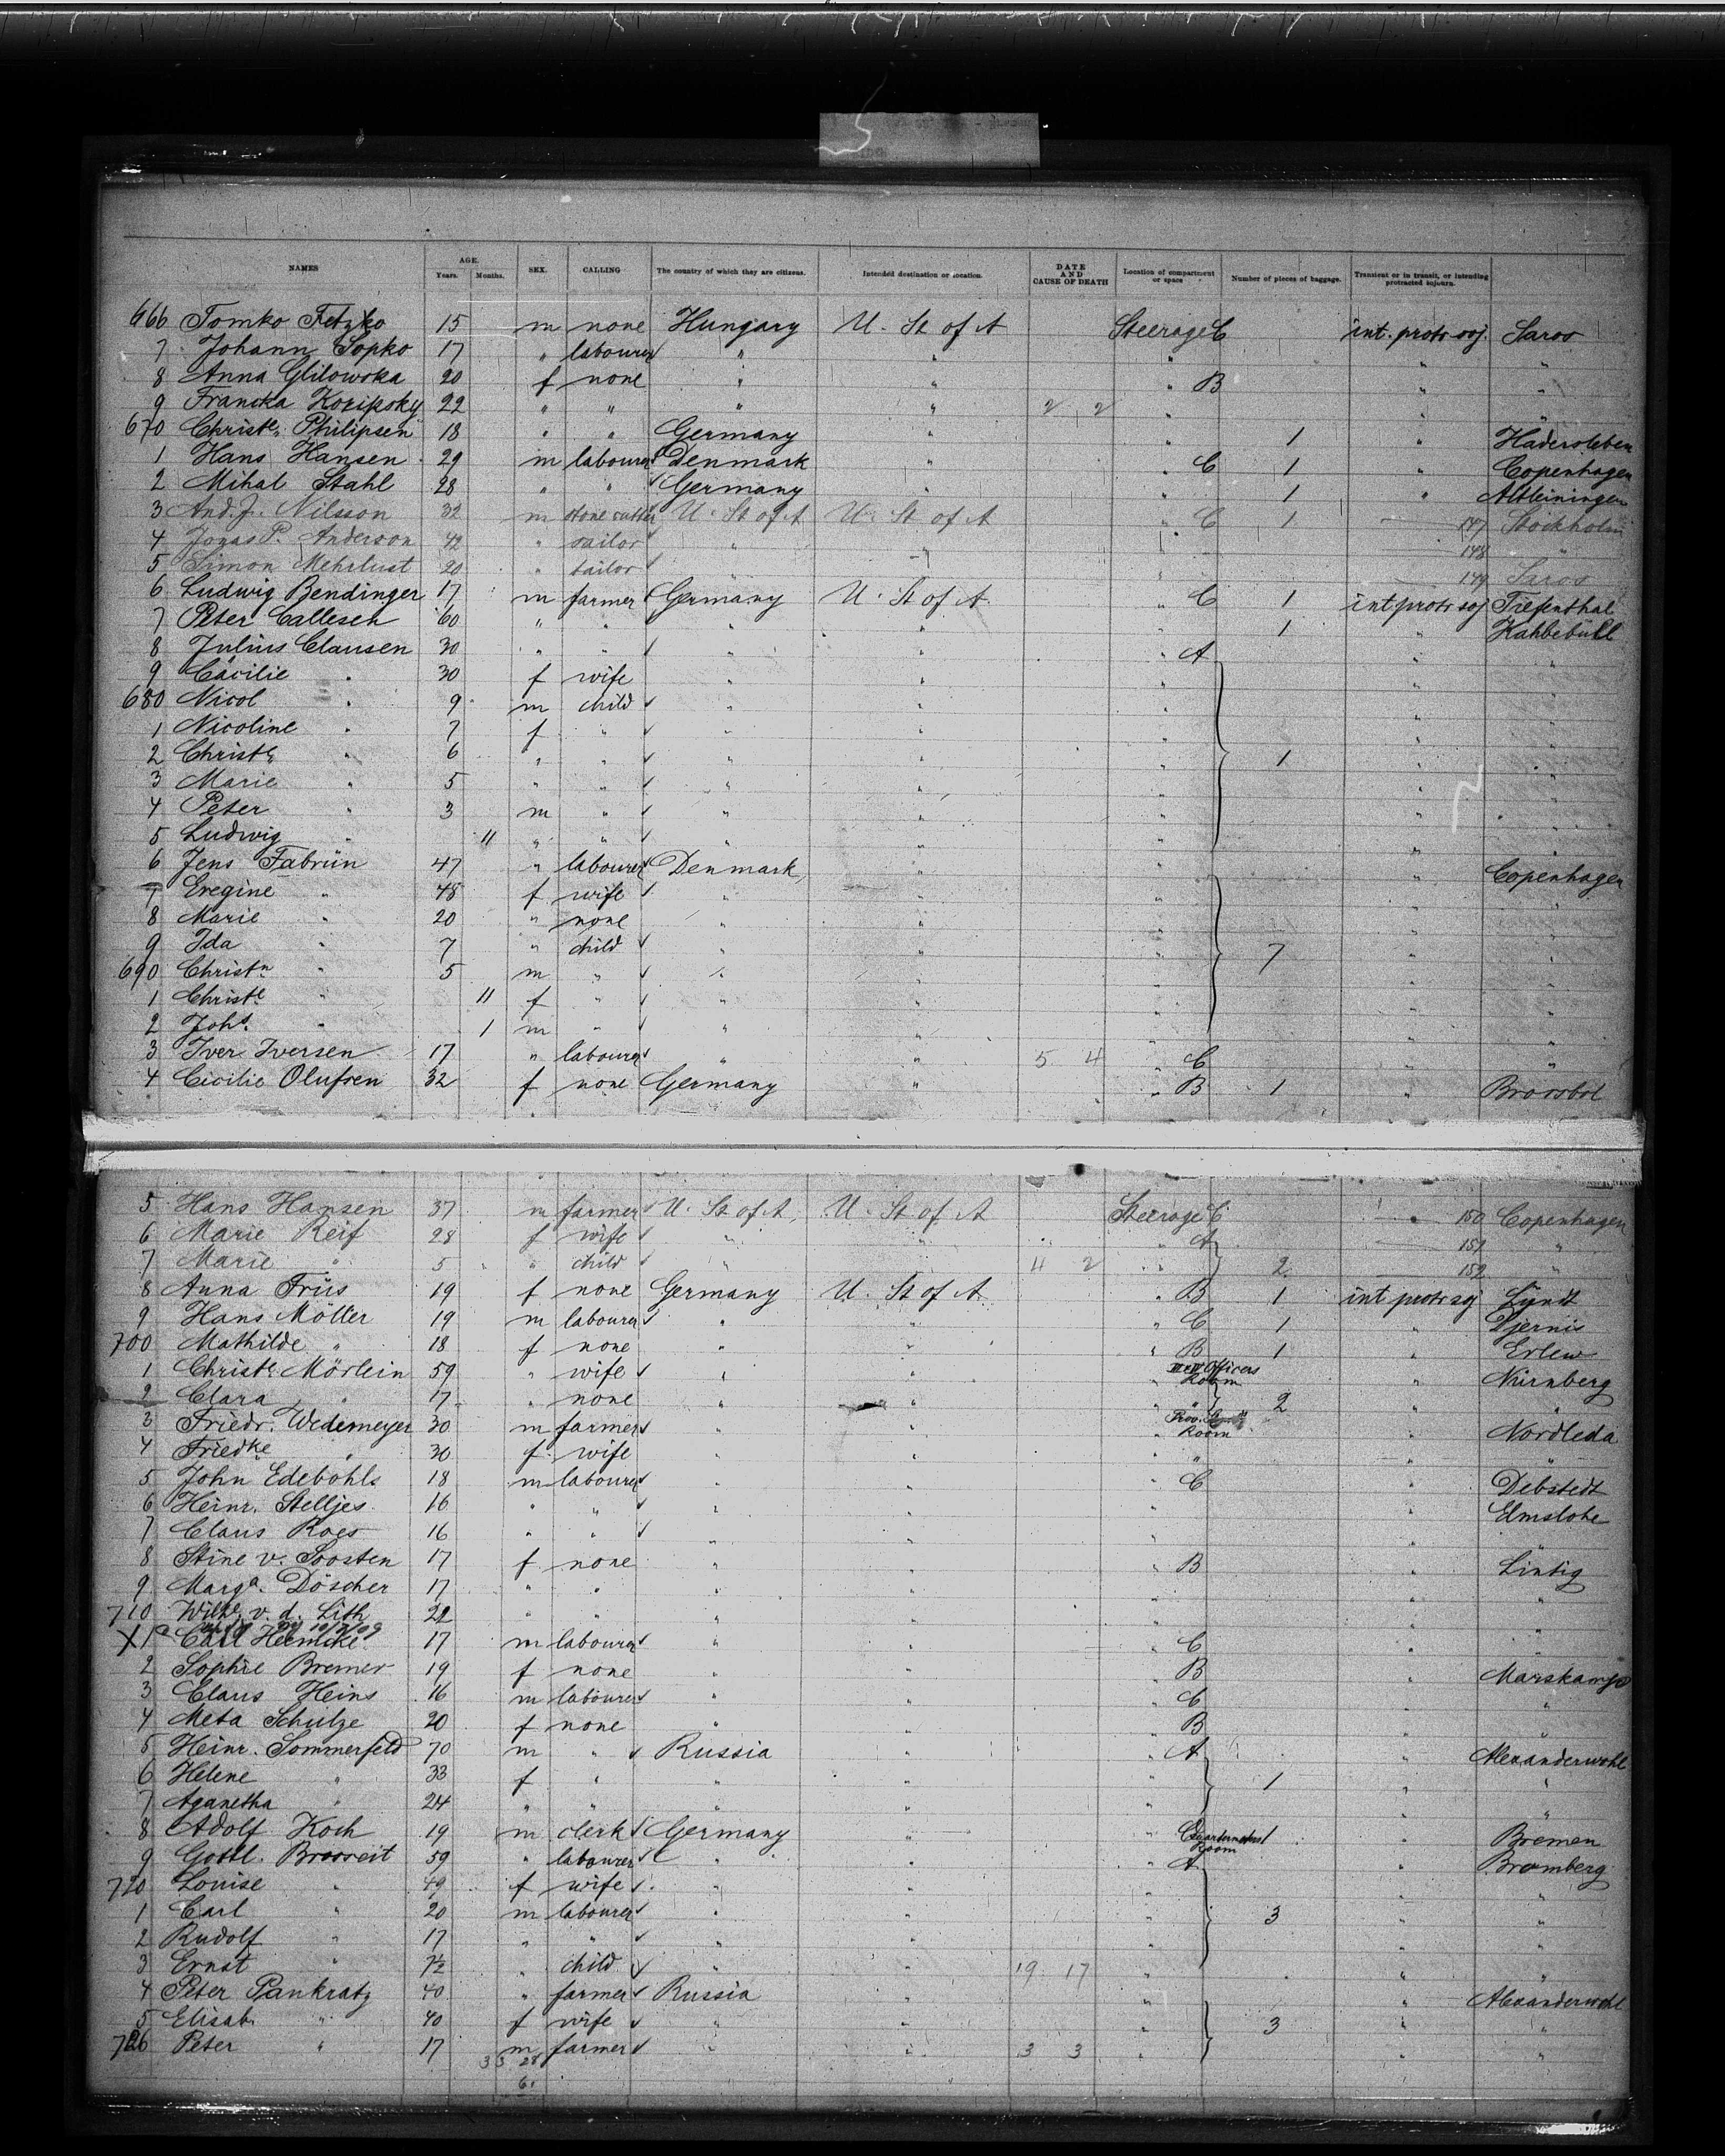 5
NAMES AGE. Years. Months. SEX. CALLING The country of which they are citizens. Intended destination or location. DATE AND CAUSE OF DEATH Location of compartment or space Number of pieces of baggage. Transient or in transit, or intending protracted sojourn.
666 Tomko Fetzko 15 m none Hungary U. St of A Steerage C int. protr. soj. Saros
7 Johann Sopko 17 " labourer " " " " "
8 Anna Glilowska 20 f none " " " B " "
9 Francka Koripsky 22 " " " " 2 2 " " "
670 Christe. Philipsen 18 " " Germany " " 1 " Hadersleben
1 Hans Hansen 29 m labourer Denmark " " C 1 " Copenhagen
2 Mihal Stahl 28 " " Germany " " 1 " Altleiningen
3 And. J. Nilsson 32 m stone cutter U. St of A U. St of A " C 1 147 Stockholm
4 Jonas P. Anderson 42 " sailor " " " 148 "
5 Simon Mehrlust 20 " tailor " " " 149 Saros
6 Ludwig Bendinger 17 m farmer Germany U. St of A " C 1 int protr soj Tiefenthal
7 Peter Callesen 60 " " " " " 1 " Kahbebüll
8 Julius Clausen 30 " " " " " A " "
9 Cäcilie " 30 f wife " " " " "
680 Nicol " 9 m child " " " " "
1 Nicoline " 7 f " " " " " "
2 Christe " 6 " " " " " 1 " "
3 Marie " 5 " " " " " " "
4 Peter " 3 m " " " " " "
5 Ludwig " 11 " " " " " " "
6 Jens Fabrün 47 " labourer Denmark " " " Copenhagen
7 Eregine " 48 f wife " " " " "
8 Marie " 20 " none " " " " "
9 Ida " 7 " child " " " " "
690 Christn " 5 m " " " " 7 " "
1 Christe " 11 f " " " " " "
2 Johs. " 1 m " " " " " "
3 Iver Iversen 17 " labourer " " 5 4 " C " "
4 Cicilie Olufsen 32 f none Germany " " B 1 "
5 Hans Hansen 37 m farmer U. St of A U. St of A Steerage C " 150 Copenhagen
6 Marie Reif 28 f wife " " " A 151 "
7 Marie " 5 " child " " 4 2 " 2 152 "
8 Anna Friis 19 f none Germany U. St of A " B 1 int protr soj Lyndt
9 Hans Möller 19 m labourer " " " C 1 " Djernis
700 Mathilde " 18 f none " " " B 1 " Erlew
1 Christe. Mörlein 59 " wife " " " Officers Room " Nürnberg
2 Clara " 17 " none " " " " 2 " "
3 Friedr. Wedemeyer 30 m farmer " " " Room " Nordleda
4 Friedke " 30 f wife " " " " "
5 John Edebohls 18 m labourer " " " C " Debstedt
6 Heinr. Stelljes 16 " " " " " " Elmslohe
7 Claus Roes 16 " " " " " " "
8 Stine v. Soosten 17 f none " " " B " Lintig
9 Marga. Döscher 17 " " " " " " "
710 Wilhe. v. d. Lith 22 " " " " " " "
X 1 Carl Heemcke 17 m labourer " " " C " "
2 Sophie Bremer 19 f none " " " B " Marskamp
3 Claus Heins 16 m labourer " " " C " "
4 Meta Schulze 20 f none " " " B " "
5 Heinr. Sommerfeld 70 m " Russia " " A " Alexanderwohl
6 Helene " 33 f " " " " 1 " "
7 Aganetha " 24 " " " " " " "
8 Adolf Koch 19 m clerk Germany " " Quartermasters Room 1 " Bremen
9 Gottl. Brosreit 59 " labourer " " " A " Bromberg
720 Louise " 49 f wife " " " " "
1 Carl " 20 m labourer " " " 3 " "
2 Rudolf " 17 " " " " " " "
3 Ernst " 7½ " child " " 19 17 " " "
4 Peter Pankratz 40 " farmer Russia " " " Alexanderwohl
5 Elisab. " 40 f wife " " " 3 " "
726 Peter " 17 m farmer " " 3 3 " " "
33 28
6